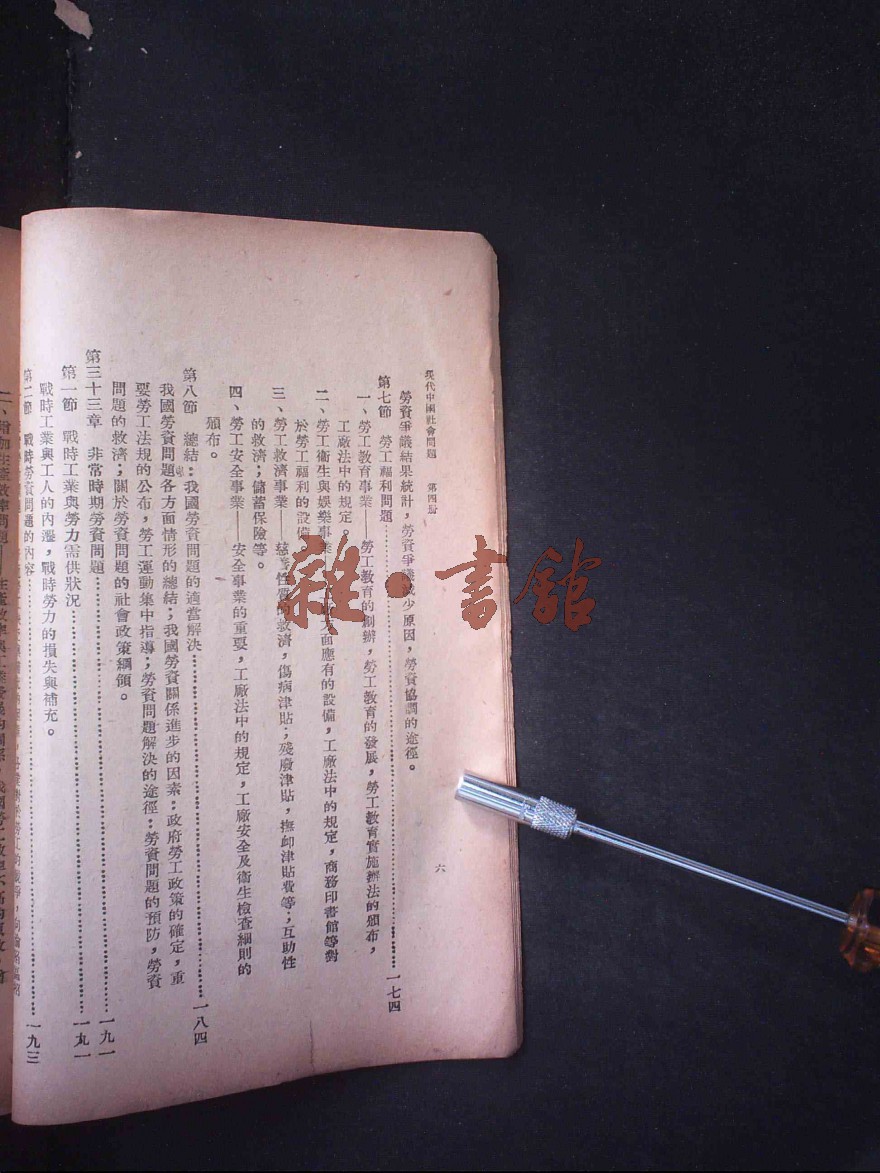 現代中國社會問題 第四册
六
勞資爭議結果統計，勞資爭議減少原因，勞資協調的途徑。
第七節 勞工福利問題……一七四
一、勞工教育事業——勞工教育的創辦，勞工教育的發展，勞工教育實施辦法的頒布，
工廠法中的規定。
二、勞工衞生與娛樂事業 方面應有的設備，工廠法中的規定，商務印書館等對
於勞工福利的設備
三、勞工救濟事業——慈善性質的救濟，傷病津貼；殘廢津貼，撫卹津貼費等；互助性
的救濟；儲蓄保險等。
四、勞工安全事業——安全事業的重要，工廠法中的規定，工廠安全及衞生檢查細則的
頒布。
第八節 總結：我國勞資問題的適當解決……一八四
我國勞資問題各方面情形的總結；我國勞資關係進步的因素：政府勞工政策的確定，重
要勞工法規的公布，勞工運動集中指導；勞資問題解決的途徑：勞資問題的預防，勞資
問題的救濟；關於勞資問題的社會政策綱領。
第三十三章 非常時期勞資問題……一九一
第一節 戰時工業與勞力需供狀況……一九一
戰時工業與工人的內遷，戰時勞力的損失與補充。
第二節 戰時勞資問題的內容……一九三
二、增加生產效率問題——生產效率與工業發展的關係，我國勞工效率不高的原故，
雜·書館